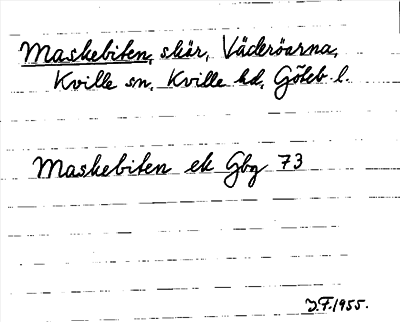 Maskebiten, skär, Väderöarna,
Kville sn. Kville hd, Göteb. l.
Maskebiten ek Gbg 73
J.F. 1955.